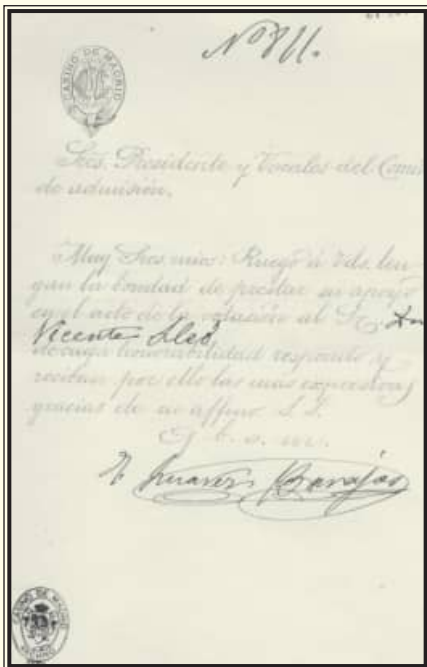 Nº 811.
CASINO DE MADRID
Sres. Presidente y Vocales del Comité
de admisión.
Muy Sres. mios: Ruego á Vds. ten
gan la bondad de prestar su apoyo
en el acto de la votación al Sr. Don
Vicente Lleó,
de cuya honorabilidad respondo y
reciban por ello las mas expresivas
gracias de su affmo. S. S.
Q. b. s. m.
Barajas
CASINO DE MADRID